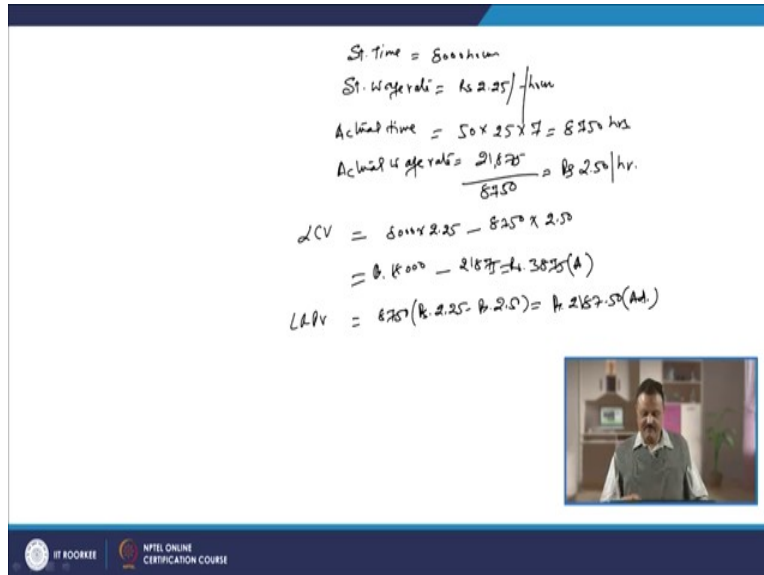 St. Time = 8000 hours
St. wage rate = Rs 2.25/- hour
Actual time = 50 x 25 x 7 = 8750 hrs
Actual wage rate = 21,875 / 8750 = Rs 2.50/hr.
LCV = 8000 x 2.25 - 8750 x 2.50
= Rs. 18000 - 21875 = Rs. 3875 (A)
LRPV = 8750 (Rs. 2.25 - Rs. 2.50) = Rs. 2187.50 (Ad.)
IIT ROORKEE
NPTEL ONLINE
CERTIFICATION COURSE